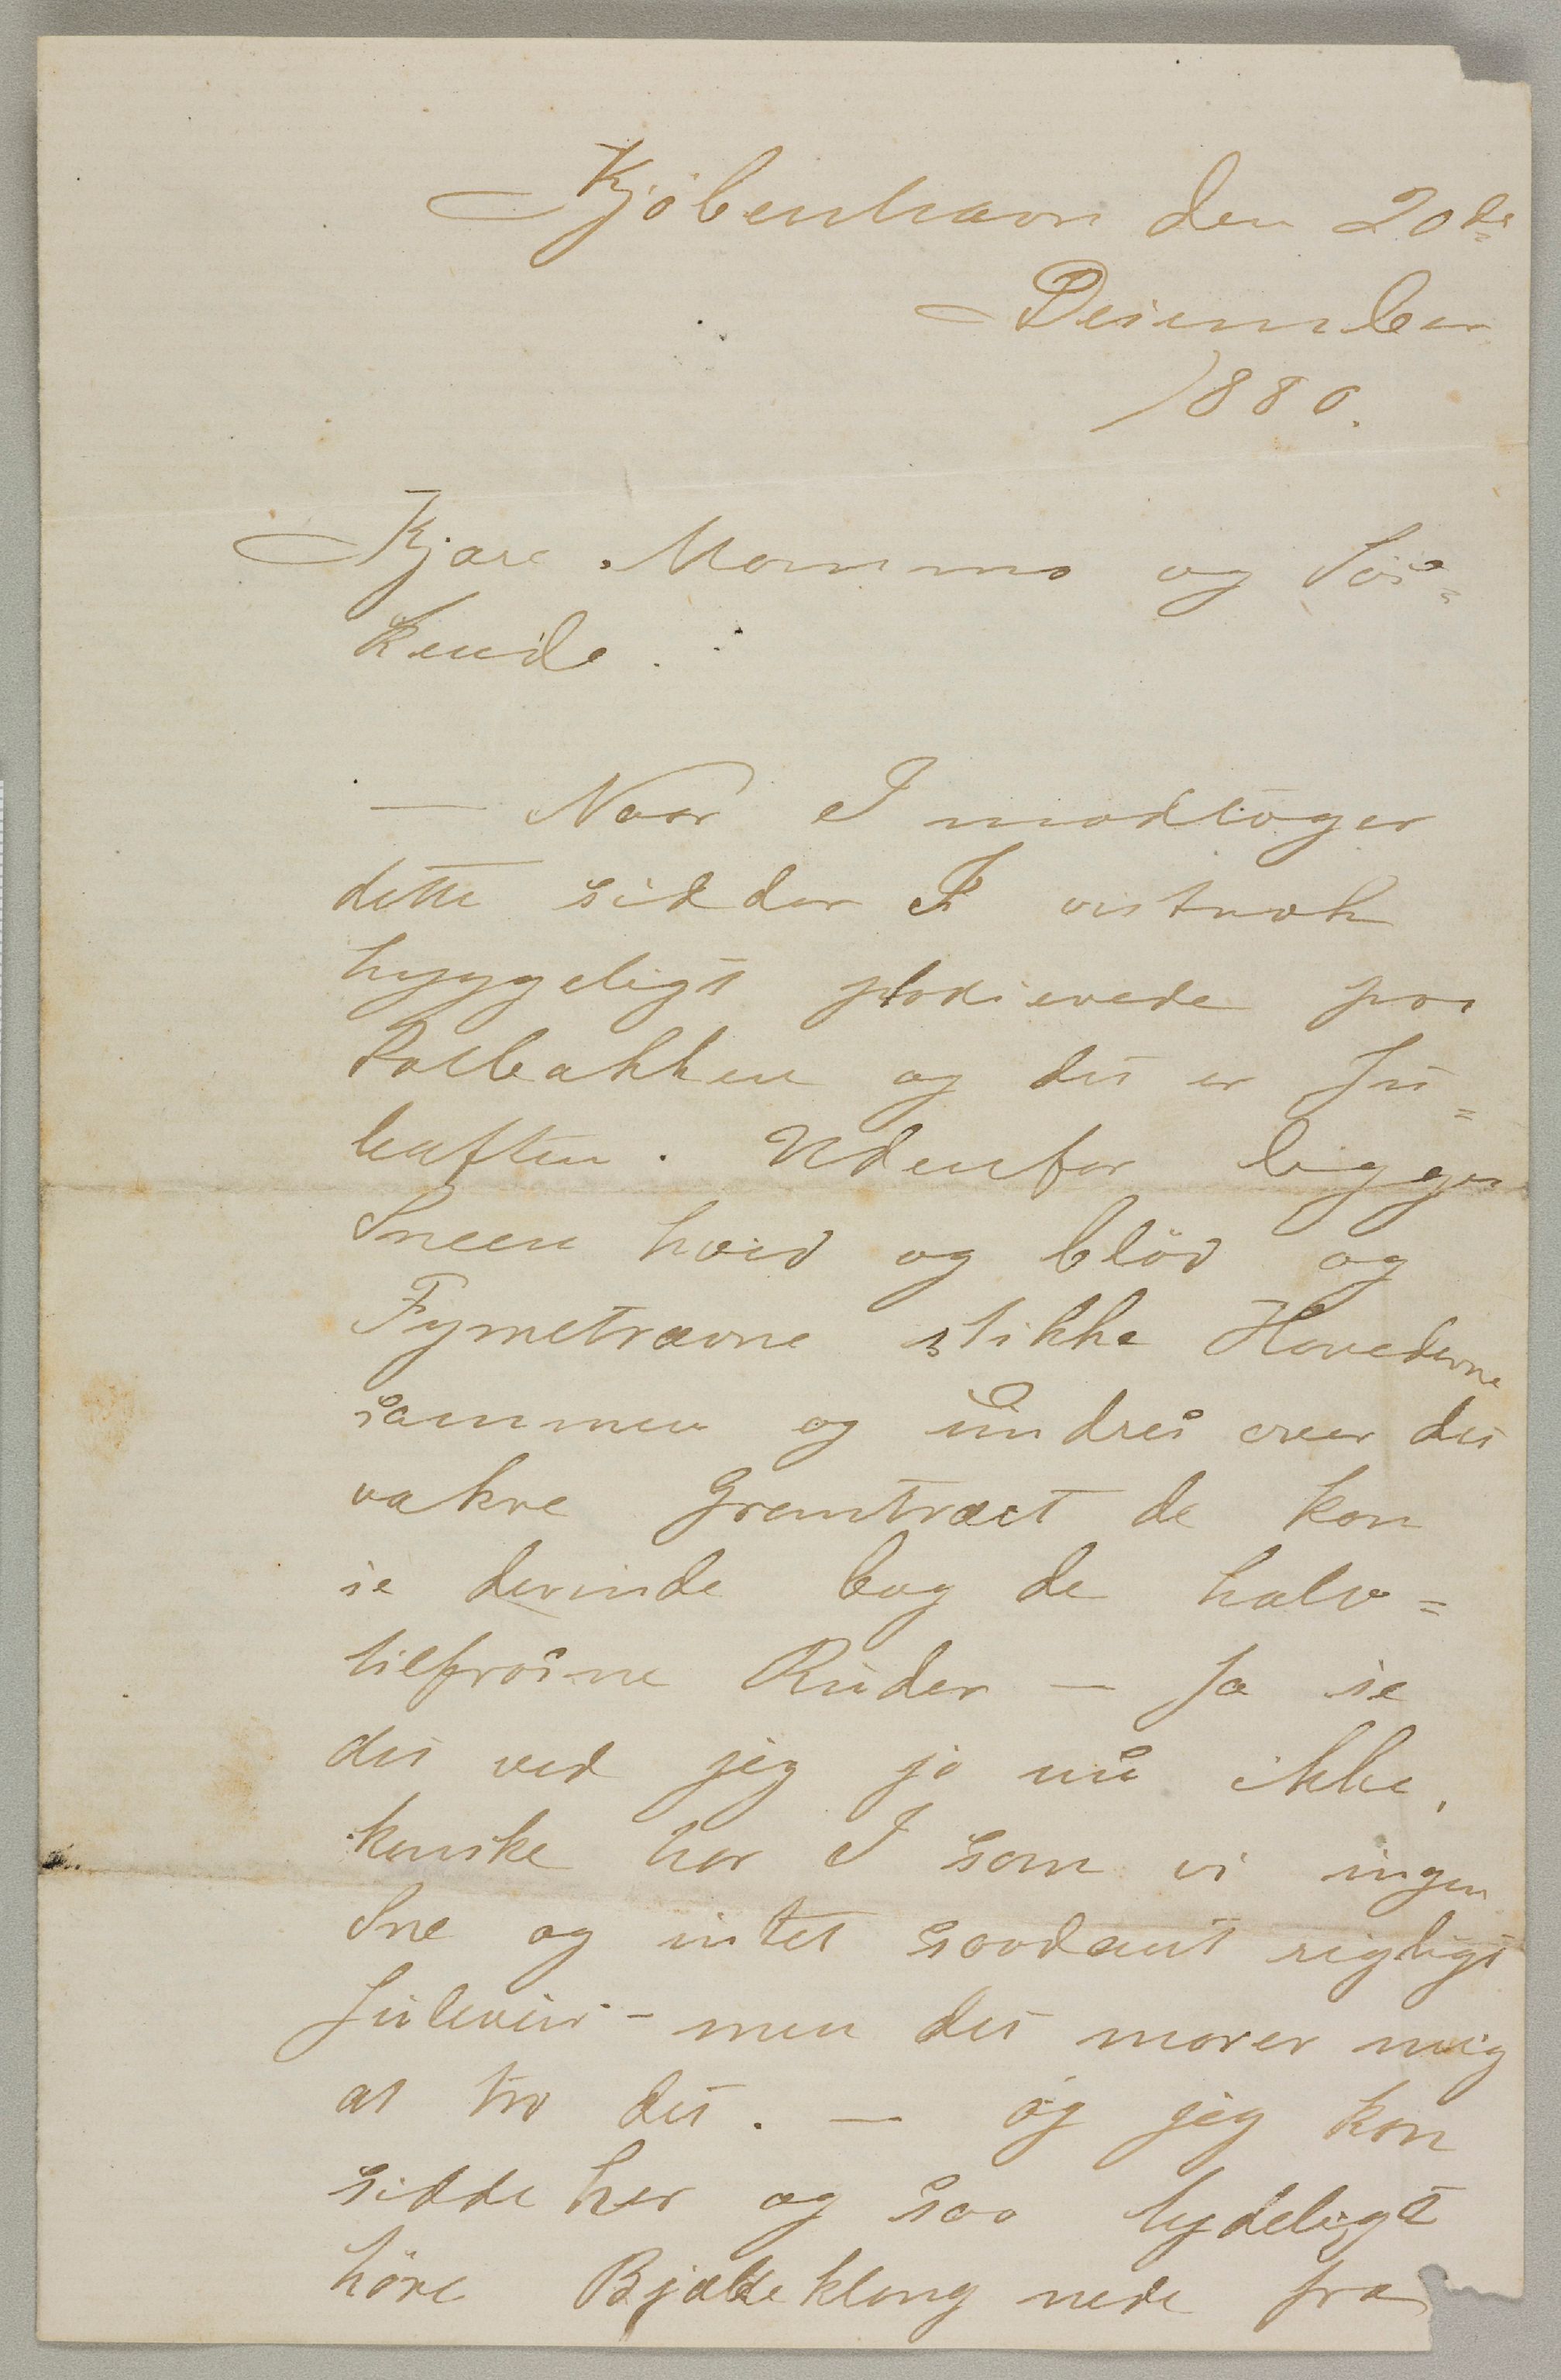 Kjöbenhavn den 20de
Desember
1880.
Kjære Mamma og Sös=
kende.
— Naar I modtager
dette sidder I vistnok
hyggeligt placierede paa
Solbakken og det er Ju=
leaften. Udenfor ligger
Sneen hvid og blöd og
Fyrretræerne stikke Hovederne
sammen og undres over det
vakre Grantræet de kan
se derinde bag de halv=
tilfrosne Ruder — Ja se
det ved jeg jo nu ikke,
kanske har I som vi ingen
Sne og intet saadant rigtigt
Juleveir – men det morer mig
at tro det. — og jeg kan
sidde her og saa tydeligt
höre Bjældeklang nede fra